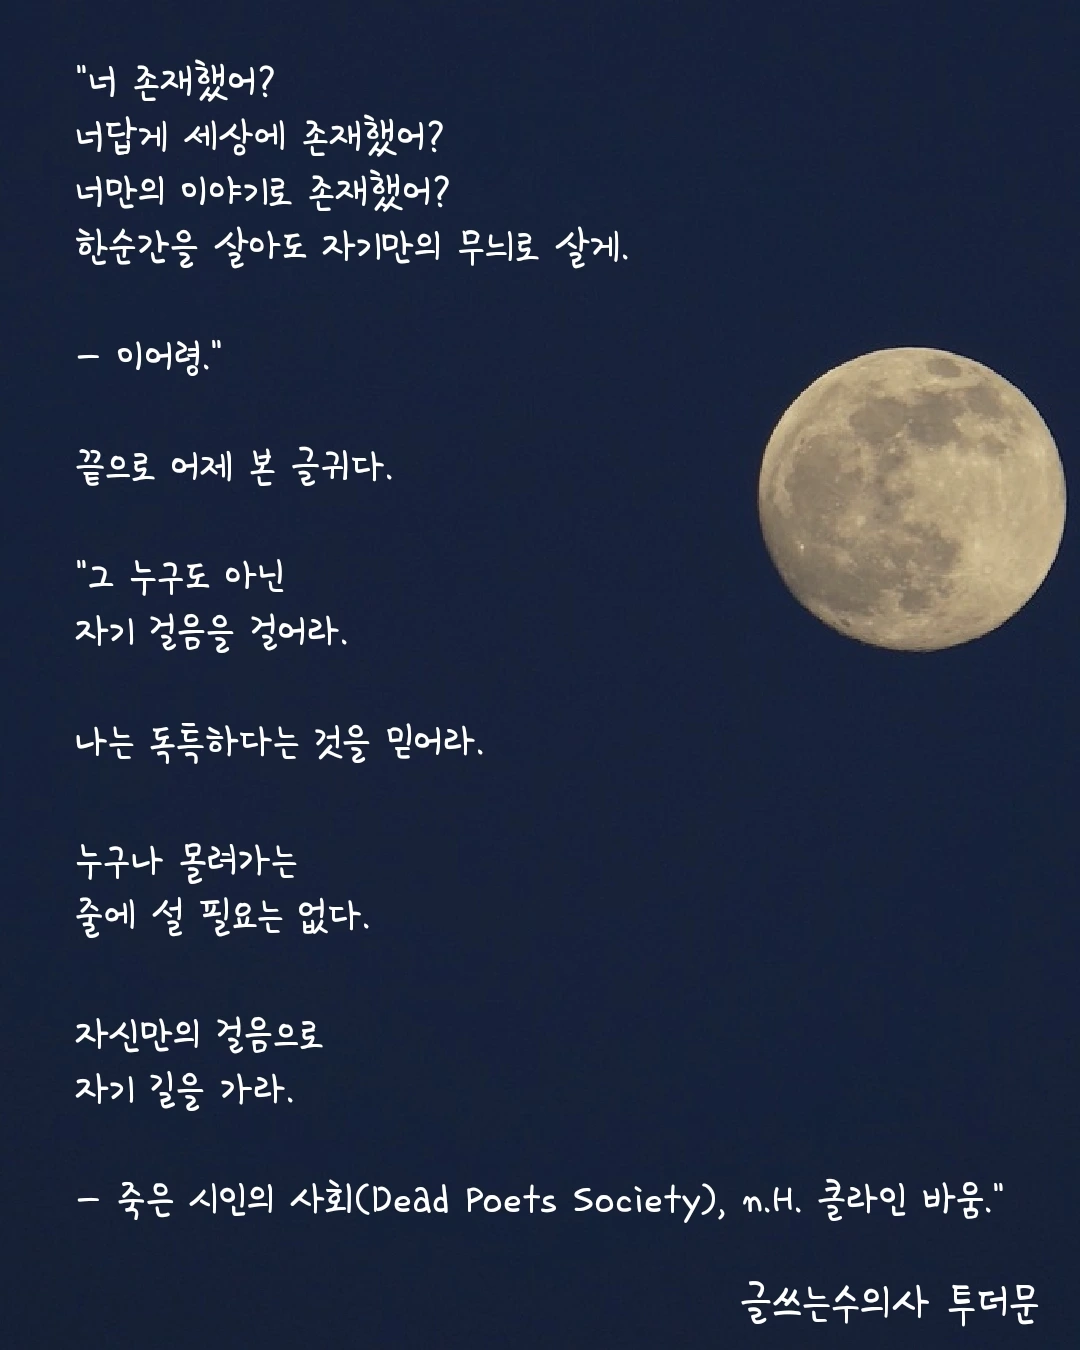 "너 존재했어?
너답게 세상에 존재했어?
너만의 이야기로 존재했어?
한순간을 살아도 자기만의 무늬로 살게.
- 이어령."
끝으로 어제 본 글귀다.
"그 누구도 아닌
자기 걸음을 걸어라.
나는 독특하다는 것을 믿어라.
누구나 몰려가는
줄에 설 필요는 없다.
자신만의 걸음으로
자기 길을 가라.
- 죽은 시인의 사회(Dead Poets Society), n.H. 클라인 바움."
글쓰는수의사 투더문